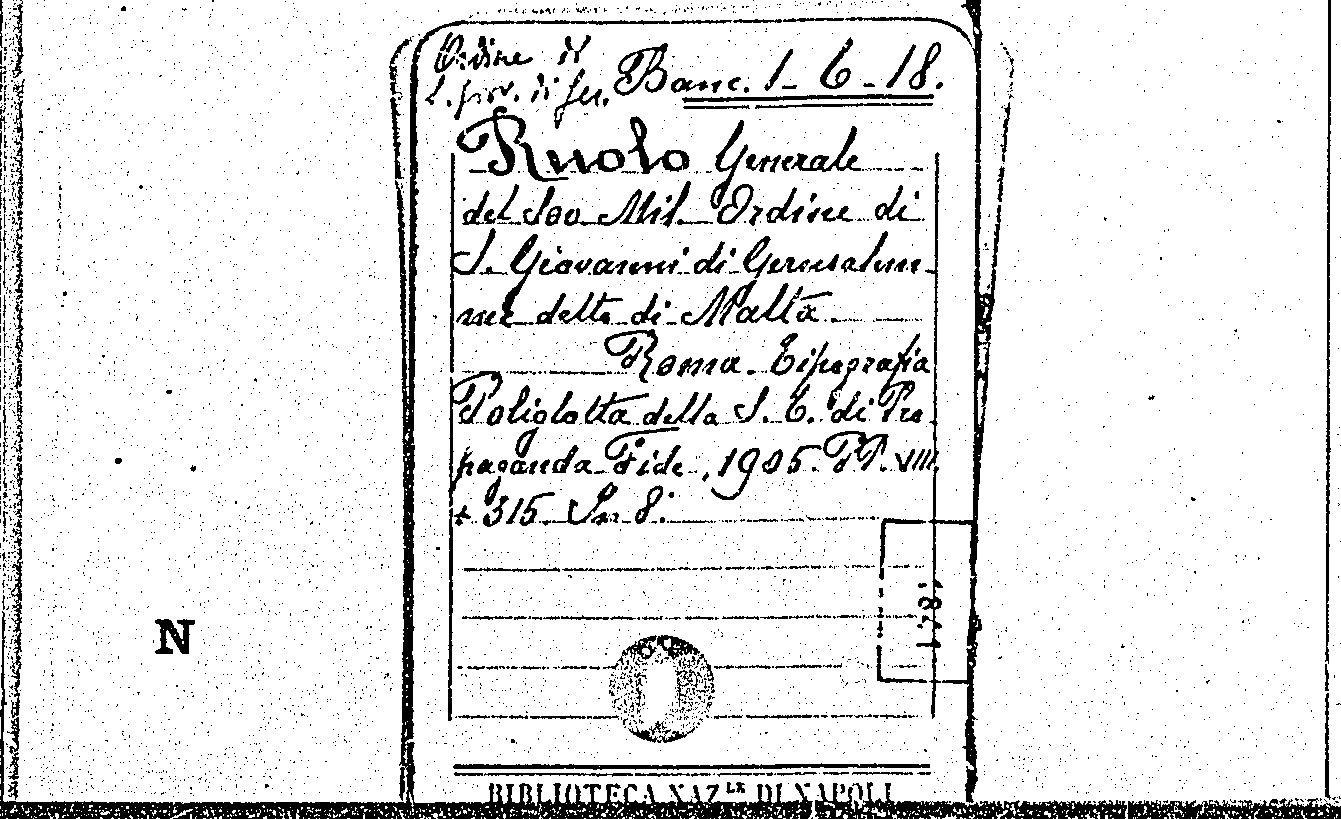 Ordine di
S. Giov. di Ger. Banc. 1-6-18.
Ruolo Generale
del Sov Mil. Ordine di
S. Giovanni di Gerusalem-
me detto di Malta.
Roma. Tipografia
Poliglotta della S. C. di Pro
paganda Fide, 1905. PP. VIII
+ 315 In 8.
N
BIBLIOTECA NAZLE DI NAPOLI